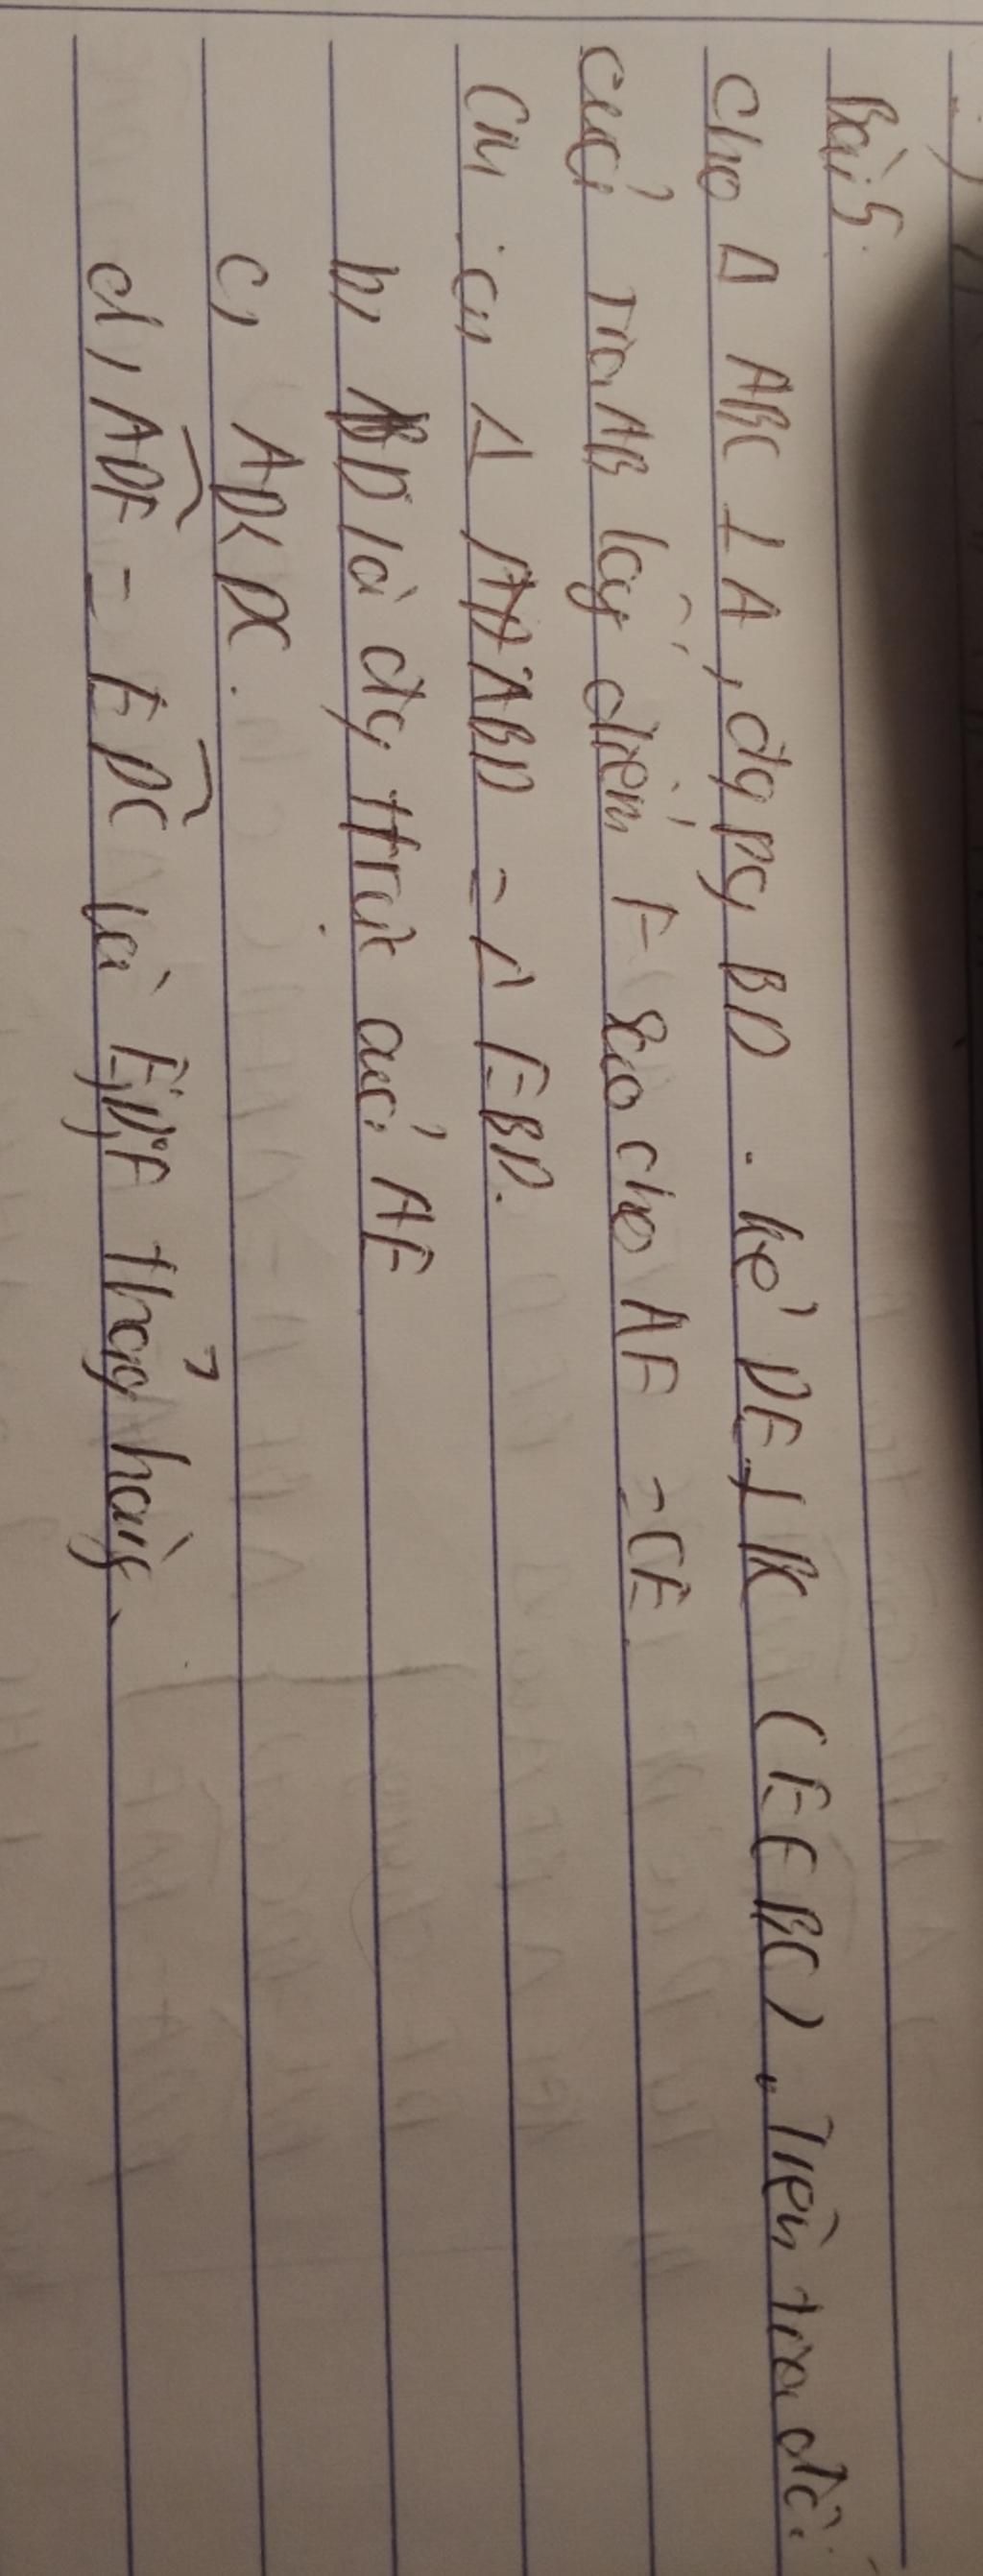 Bài 5.
Cho Δ ABC ⊥ A, đg pg BD. kẻ DE ⊥ BC (E ∈ BC). Trên tia đối
của tia AB lấy điểm F sao cho AF = CE
CM: a, Δ ABD = Δ EBD.
b, BD là đg trực của AE
c, AD < DC.
d, ADF = EDC và E,D,F thẳng hàng.